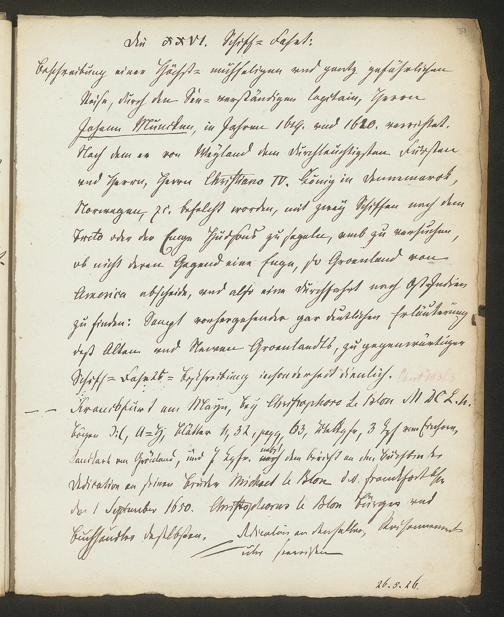 Die XXVI. Schiff=Fahrt:
Beschreibung einer Höchst= mühseligen und gantz gefährlichen
Reise, durch den See=verständigen Capitain, Herrn
Johann Müncken, in Jahren 1619. und 1620. verrichtet.
Nach dem er von Weyland dem Durchleuchtigsten Fürsten
und Herrn, Herrn Christiano IV. König in Dennemarck,
Norwegen, &c. befelcht worden, mit zwey Schiffen nach dem
Freto oder der Enge Hudsons zu segeln, umb zu versuchen,
ob nicht deren Gegend eine Enge, so Groenland von
America abscheide, und also eine Durchfahrt nach Ost-Indien
zu finden: Sampt vorhergehender gar deutlichen Erläuterung
deß Alten und Newen Groenlandts, zu gegenwärtiger
Schiff=Fahrts=Beschreibung insonderheit dienlich.
Franckfurt am Mayn, bey Christophoro le Blon M DC L. 4.
Bogen Blätter 32, pagg. 63, 3
Landkart von Grönland, und dem Bericht an den
Dedication an seinen Bruder Michael le Blon d.d. Franckfurt
den 1 September 1650. Christophorus le Blon Bürger und
Buchhändler daselbsten. Dedication an denselben,
über
26.3.26.